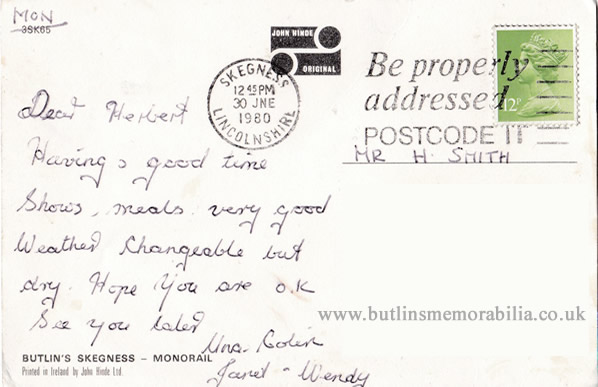 MON
3SK65
JOHN HINDE
ORIGINAL
SKEGNESS
12 45 PM
30 JNE
1980
LINCOLNSHIRE
Be properly
addressed
POSTCODE IT
12P
MR H. SMITH
Dear Herbert
Having a good time
Shows, meals very good
Weather Changeable but
dry. Hope You are O.K
See you later
Una. Colin
Janet - Wendy
www.butlinsmemorabilia.co.uk
BUTLIN'S SKEGNESS – MONORAIL
Printed in Ireland by John Hinde Ltd.